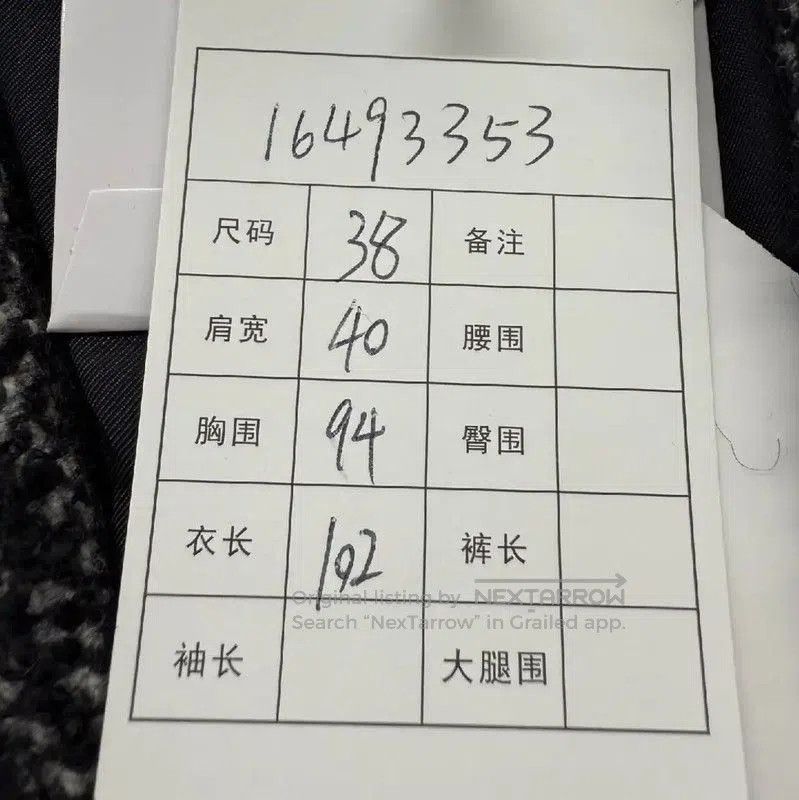 16493353
尺码 38 备注
肩宽 40 腰围
胸围 94 臀围
衣长 102 裤长
Original listing by NEXTARROW
Search “NexTarrow” in Grailed app.
袖长 大腿围